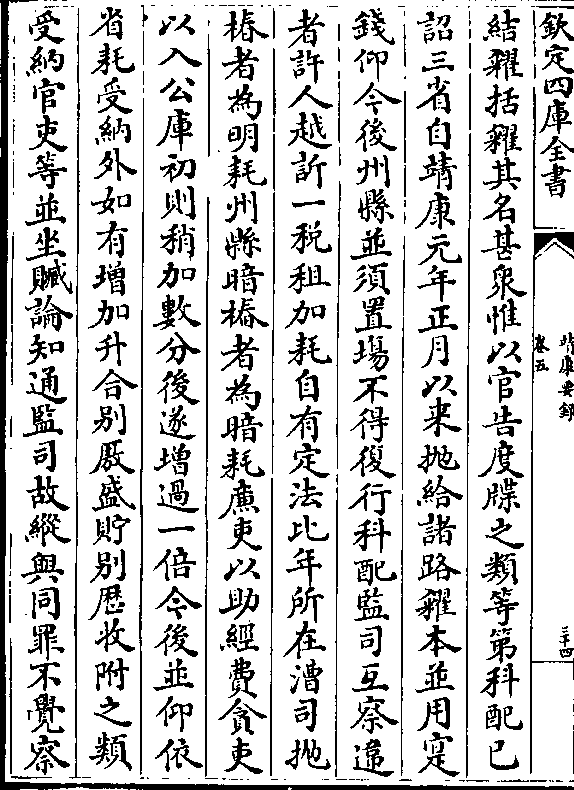 欽定四庫全書
靖康要錄
卷五
三十四
結糴括糴其名甚衆惟以官告度牒之類等第科配已
詔三省自靖康元年正月以来抛給諸路糴本並用寔
錢仰今後州縣並須置場不得復行科配監司互察違
者許人越訴一税租加耗自有定法比年所在漕司抛
樁者為明耗州縣暗樁者為暗耗廉吏以助經費貪吏
以入公庫初則稍加數分後遂增過一倍今後並仰依
省耗受納外如有增加升合别厫盛貯别歴收附之類
受納官吏等並坐贓論知通監司故縱與同罪不覺察